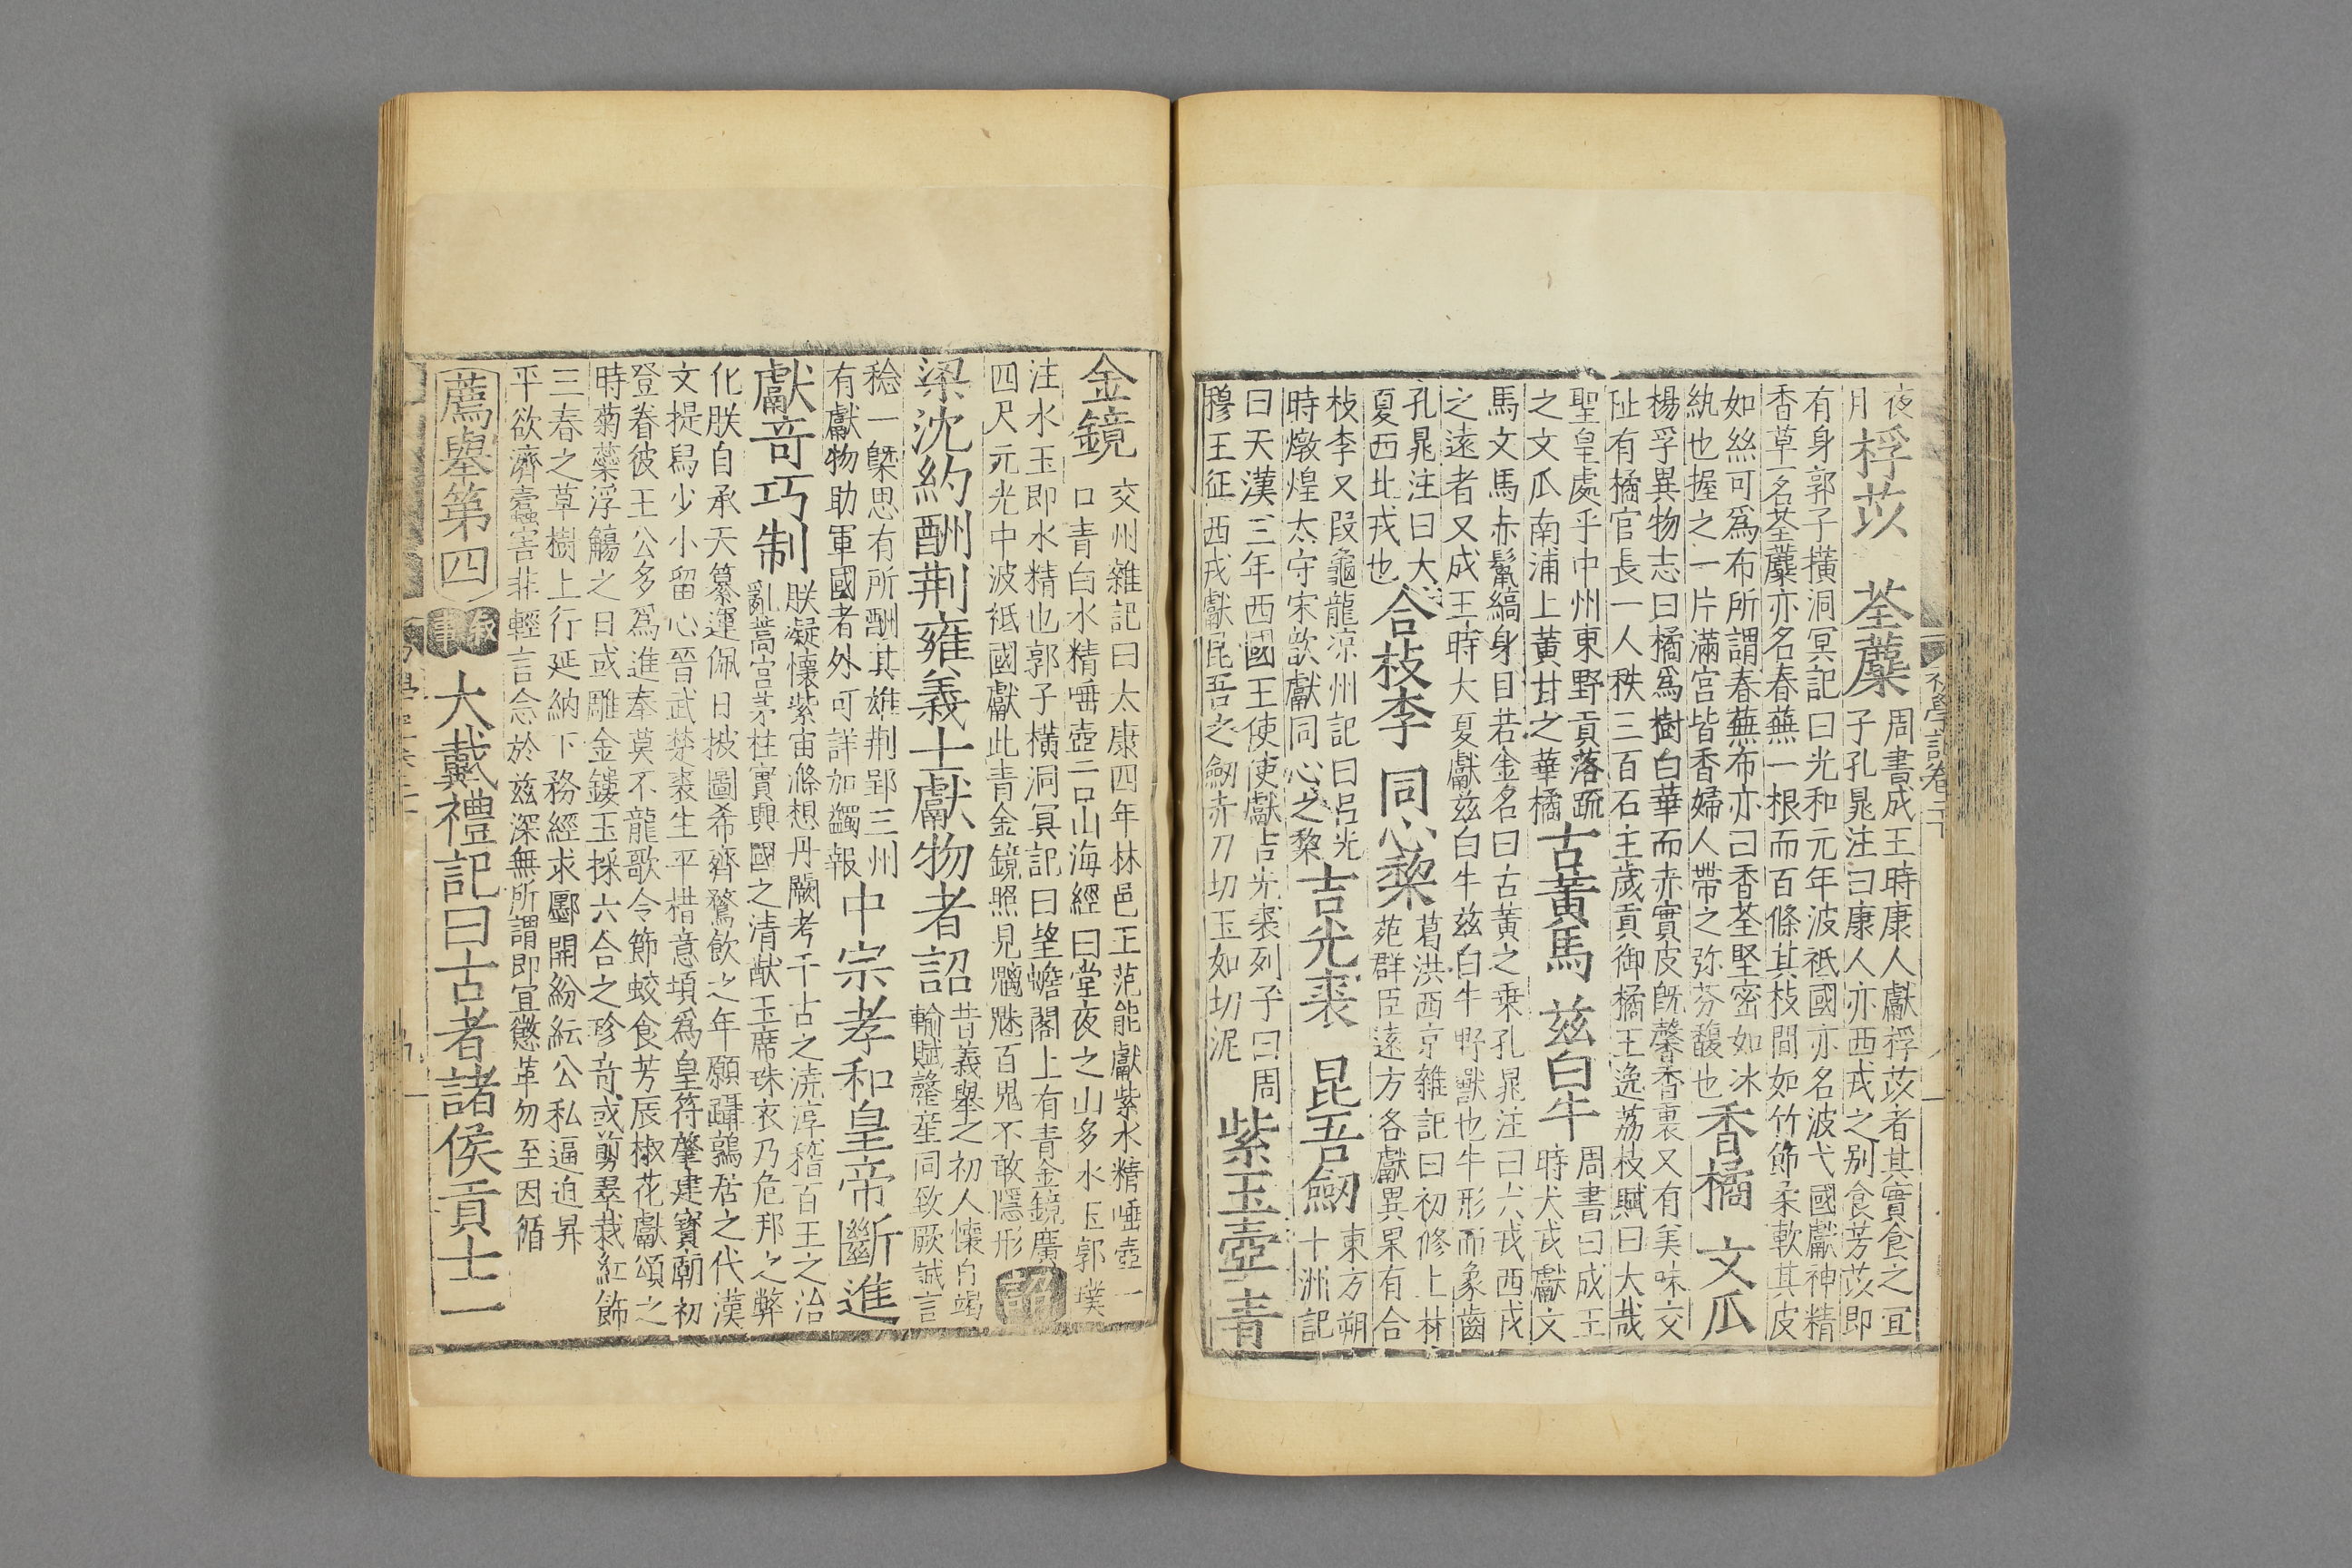 夜
月
桴苡 荃蘪
周書成王時康人獻桴苡者其實食之宜
子孔晁注曰康人亦西戎之别食芳苡即
有身郭子橫洞冥記曰光和元年波祇國亦名波弋國獻神精
香草一名荃蘪亦名春蕪一根而百條其枝間如竹節柔軟其皮
如絲可爲布所謂春蕪布亦曰香荃堅密如冰
紈也握之一片滿宫皆香婦人帶之弥芬馥也
香橘 文瓜
楊孚異物志曰橘爲樹白華而赤實皮既馨香裏又有美味交
趾有橘官長一人秩三百石主歲貢御橘王逸荔枝賦曰大哉
聖皇處乎中州東野貢落疏
之文瓜南浦上黄甘之華橘
古黃馬 兹白牛
周書曰成王
時犬戎獻文
馬文馬赤鬣縞身目若金名曰古黃之乗孔晁注曰犬戎西戎
之遠者又成王時大夏獻兹白牛兹白牛野獸也牛形而象齒
孔晁注曰大
夏西北戎也
合枝李 同心棃
葛洪西京雜記曰初修上林
苑群臣遠方各獻異果有合
枝李又段龜龍凉州記曰吕光
時燉煌太守宋歆獻同心之棃
吉光裘 昆吾劒
東方朔
十洲記
曰天漢三年西國王使使獻吉光裘列子曰周
穆王征西戎獻昆吾之劒赤刀切玉如切泥
紫玉壺 青
金鏡
交州雜記曰太康四年林邑王范能獻紫水精唾壺一
口青白水精唾壺二口山海經曰堂夜之山多水玉郭璞
注水玉即水精也郭子橫洞冥記曰望蟾閣上有青金鏡廣
四尺元光中波祇國獻此青金鏡照見魑魅百鬼不敢隱形
詔
梁沈約酬荆雍義士獻物者詔
昔義舉之初人懷自竭
輸賦罄産同致厥誠言
稔一槩思有所酬其雄荆郢三州
有獻物助軍國者外可詳加蠲報
中宗孝和皇帝斷進
獻竒巧制
朕凝懷紫宙滌想丹闕考千古之澆淳稽百王之治
亂蒿宫茅柱實興國之清猷玉席珠衣乃危邦之弊
化朕自承天纂運佩日披圖希齊鷔飲之年願躡鶉居之代漢
文提舄少小留心晉武焚裘生平措意頃爲皇符肇建寶廟初
登眷彼王公多爲進奉莫不龍歌令節蛟食芳辰椒花獻頌之
時菊蘂浮觴之日或雕金鏤玉採六合之珍竒或剪翠裁紅飾
三春之草樹上行延納下務經求鄽開紛紜公私逼迫昇
平欲濟蠧害非輕言念於兹深無所謂即宜懲革勿至因循
薦舉第四
叙事
大戴禮記曰古者諸侯貢士一
初學記卷二十